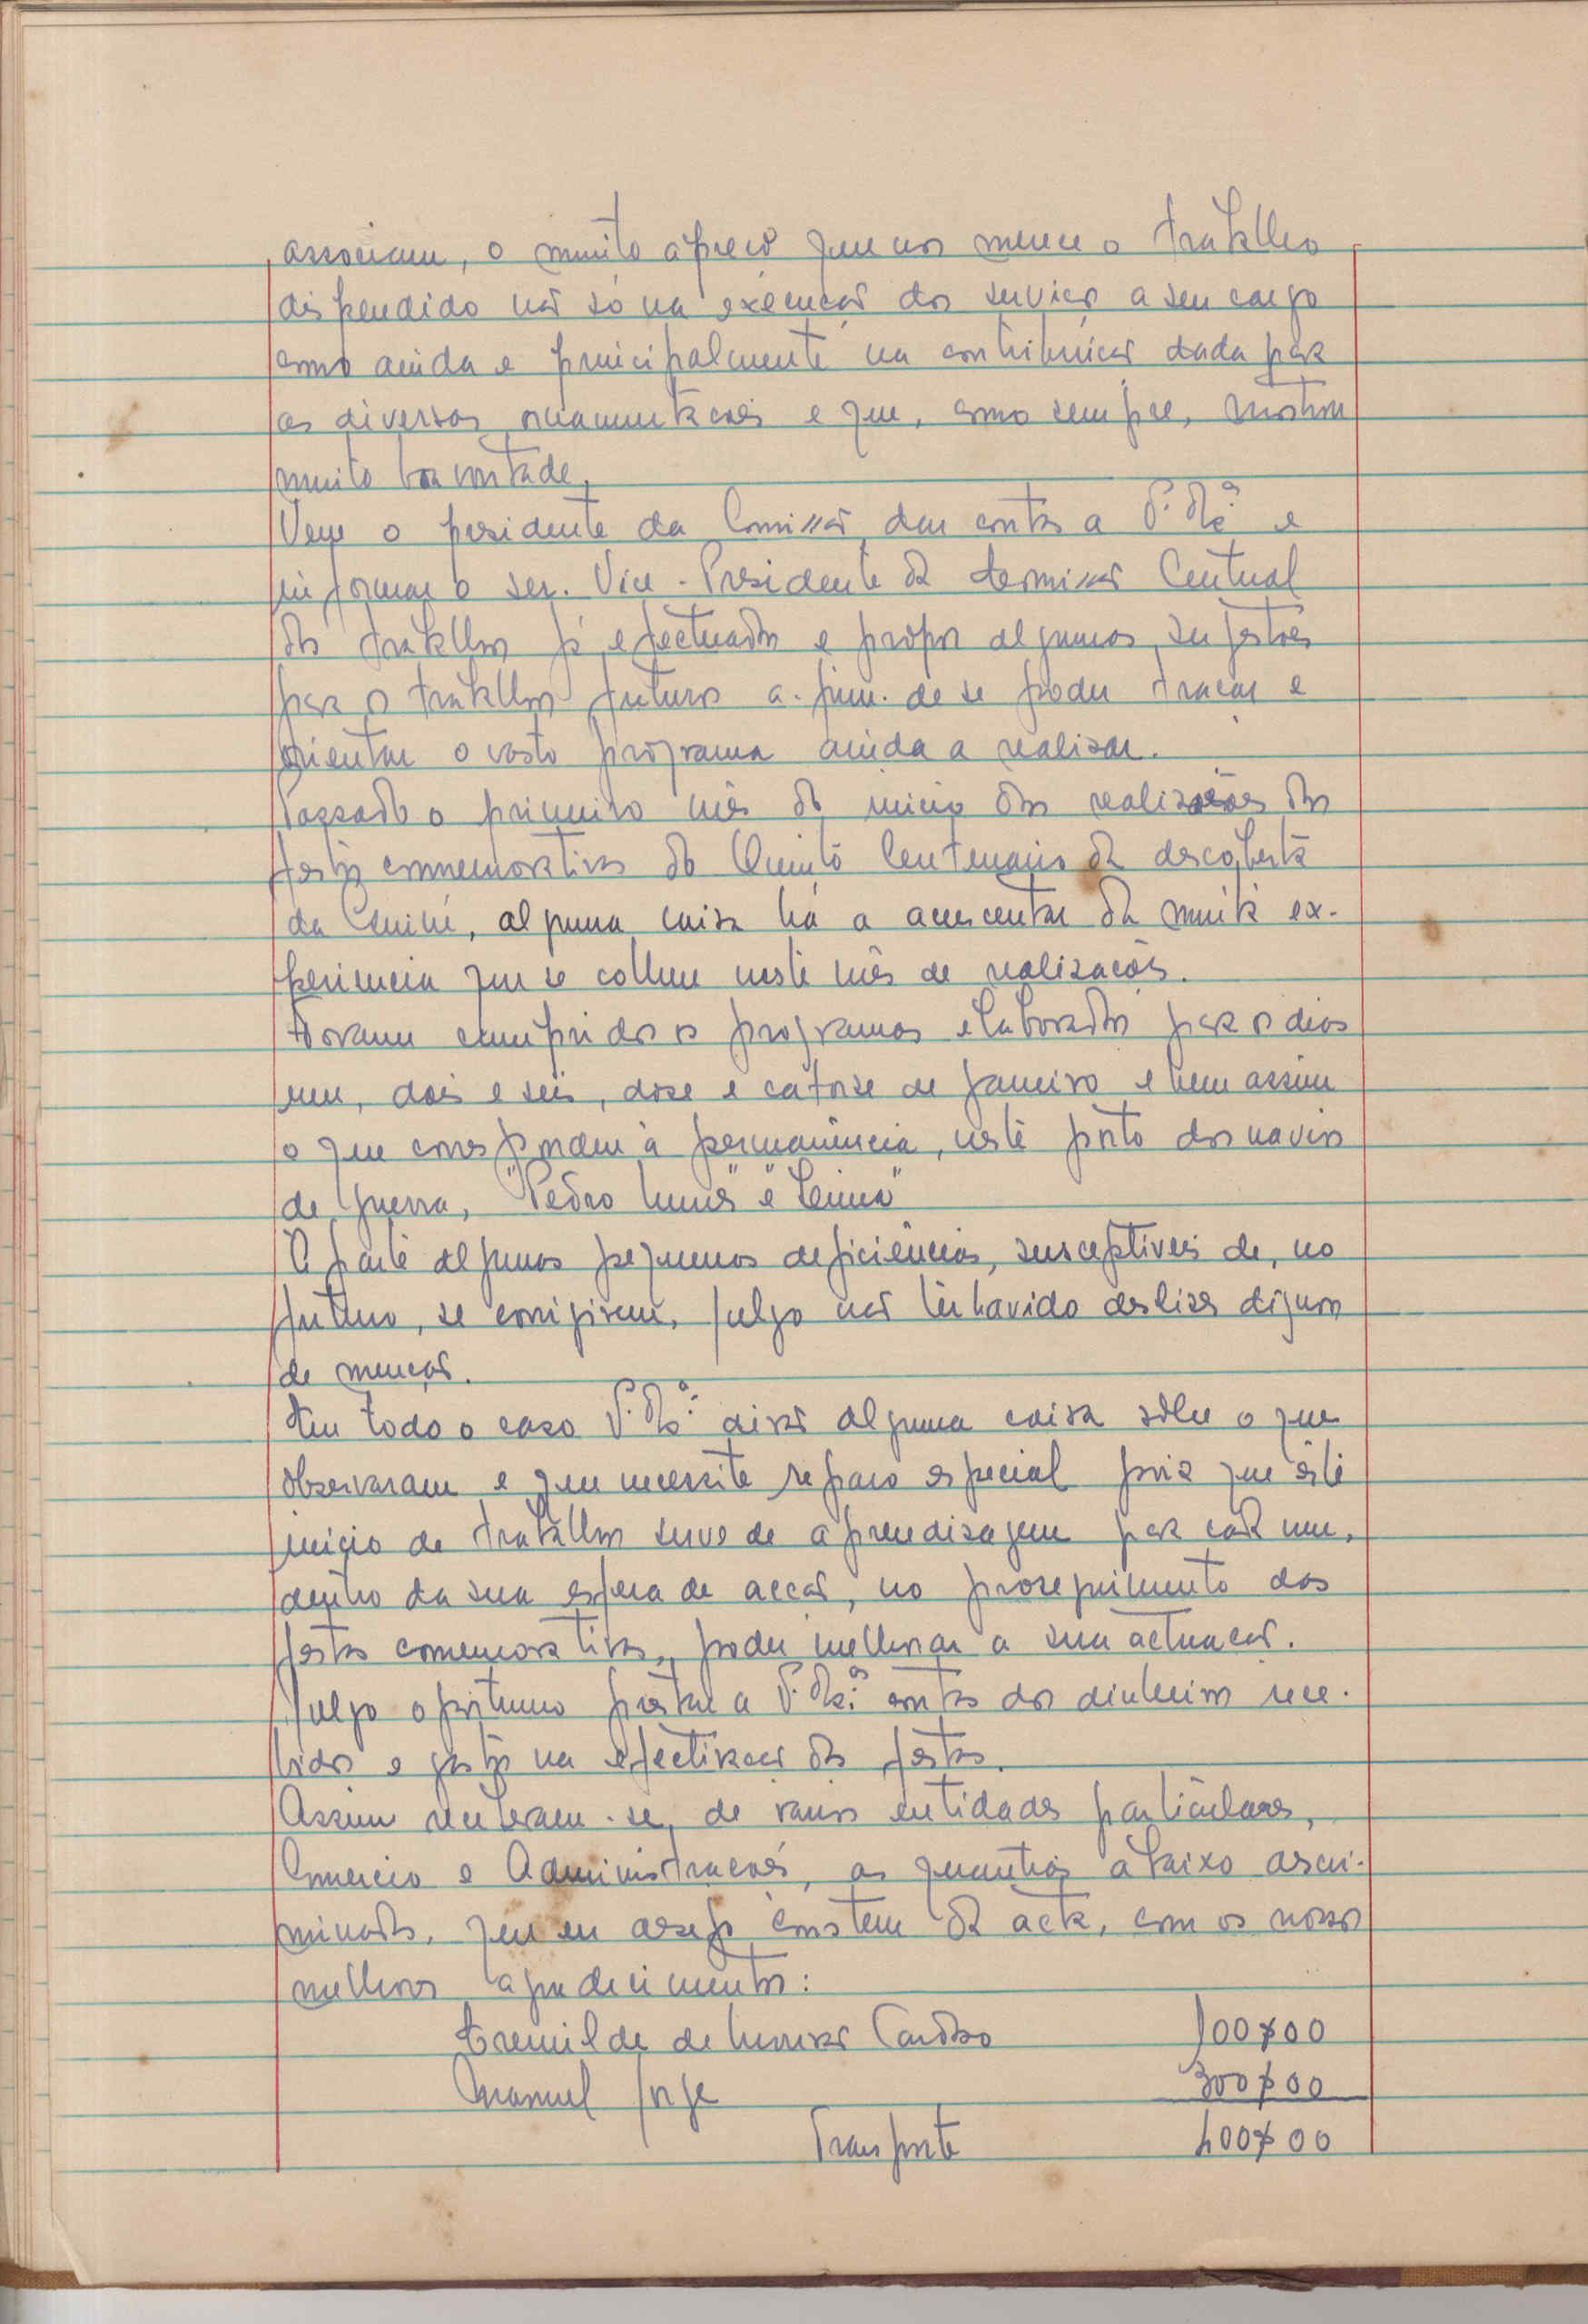 associam, o muito apreço que nos merece o trabalho
dispendido não só na execução dos serviços a seu cargo
como ainda e principalmente na contribuição dada para
as diversas ornamentações e que, como sempre, mostrou
muito boa vontade.
Vem o presidente da Comissão dar contas a V. Ex.ªs e
informar o sr. Vice-Presidente da Comissão Central
dos trabalhos já efectuados e propor algumas sugestões
para os trabalhos futuros a-fim-de se poder traçar e
orientar o vasto programa ainda a realizar.
Passado o primeiro mês do início das realizações das
festas commemorativas do Quinto Centenário da descoberta
da Guiné, alguma coisa há a acrescentar da muita ex-
periencia que se colheu neste mês de realizações.
Foram cumpridos os programas elaborados para os dias
um, dois e seis, doze e catorze de Janeiro e bem assim
o que correspondeu à permanência, neste porto dos navios
de guerra, "Pedro Nunes" e
À parte algumas pequenas deficiências, susceptiveis de, no
futuro, se corrigirem, julgo não ter havido deslises dignos
de menção.
Em todo o caso V. Ex.ªs dirão alguma coisa sôbre o que
observaram e que necessite reparo especial para que êste
início de trabalhos serve de aprendizagem para cada um,
dentro da sua esfera de acção, no proseguimento das
festas comemorativas, poder melhorar a sua actuação.
Julgo oportuno prestar a V. Ex.ªs contas dos dinheiros rece-
bidos e gastos na efectivação das festas.
Assim receberam-se, de varias entidades particulares,
Comercio e Administrações, as quantias abaixo descri-
minadas, que eu desejo constem da acta, com os nossos
melhores agradecimentos:
de Cardoso 100$00
Manuel Jorge 300$00
Transporte 400$00